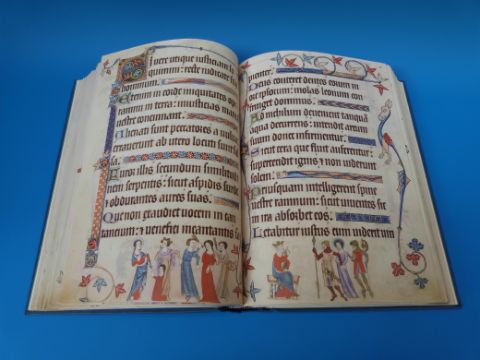 I vere utique iusticiam lo
quimini: recte iudicate fi
hominum.
Etenim in corde iniquitates op
ramini in terra: iniusticias man
vestre concinnant.
Alienati sunt peccatores a vul
erraverunt ab utero locuti sunt
sa.
Furor illis secundum similitud
nem serpentis: sicut aspidis surd
obdurantes aures suas.
Que non exaudiet vocem in can
tancium: venefici incantantis sa
pienter.
Deus conteret dentes eorum in
ore ipsorum: molas leonum con
fringet dominus.
Ad nichilum devenient tanquā
aqua decurrens: intendit arcum
suum donec infirmentur.
Sicut cera que fluit auferentur:
supercecidit ignis et non viderunt
solem.
Priusquam intelligerent spine
vestre rampnum: sicut viventes sic
in ira absorbet eos.
Letabitur iustus cum viderit vin